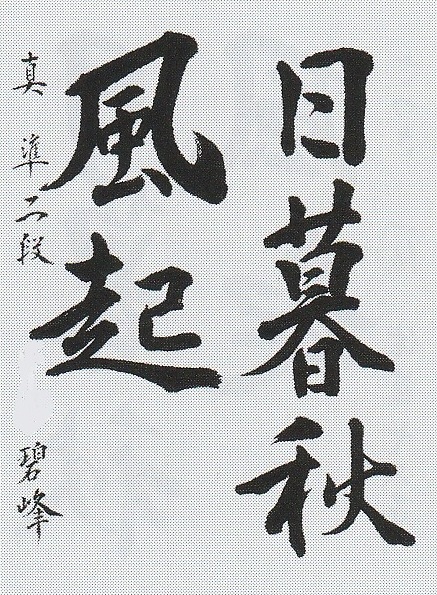 日暮秋
風起
真 準二段 碧峰